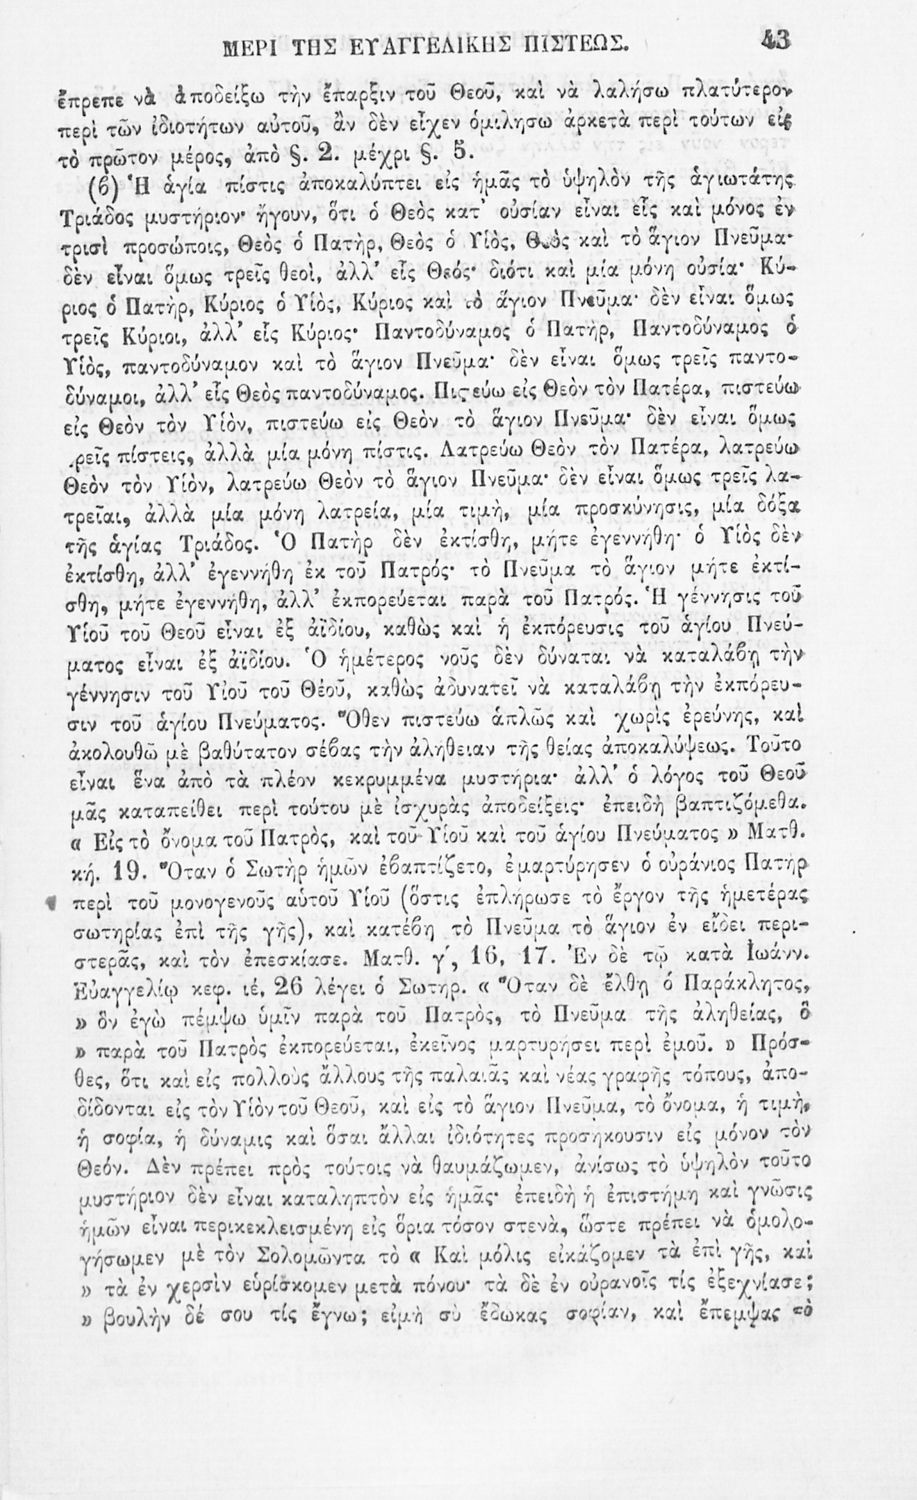 ΜΕΡΙ ΤΗΣ ΕΥΑΓΓΕΛΙΚΗΣ ΠΙΣΤΕΩΣ. 43
ἔπρεπε νὰ ἀποδείξω τὴν ἔπαρξιν τοῦ Θεοῦ, καὶ νὰ λαλήσω πλατύτερον
περὶ τῶν ἰδιοτήτων αὐτοῦ, ἂν δὲν εἶχεν ὁμιλησω ἀρκετὰ περὶ τούτων εἰς
τὸ πρῶτον μέρος, ἀπὸ §. 2. μέχρι §. 5.
(6) Ἡ ἁγία πίστις ἀποκαλύπτει εἰς ἡμᾶς τὸ ὑψηλὸν τῆς ἁγιωτάτης
Τριάδος μυστήριον· ἤγουν, ὅτι ὁ Θεὸς κατ᾽ οὐσίαν εἶναι εἷς καὶ μόνος ἐν
τρισὶ προσώποις, Θεὸς ὁ Πατὴρ, Θεὸς ὁ Υἱὸς, Θεὸς καὶ τὸ ἅγιον Πνεῦμα·
δὲν εἶναι ὅμως τρεῖς θεοὶ, ἀλλ᾽ εἷς Θεός· διότι καὶ μία μόνη οὐσία· Κύ-
ριος ὁ Πατὴρ, Κύριος ὁ Υἱὸς, Κύριος καὶ τὸ ἅγιον Πνεῦμα· δὲν εἶναι ὅμως
τρεῖς Κύριοι, ἀλλ᾽ εἷς Κύριος· Παντοδύναμος ὁ Πατὴρ, Παντοδύναμος ὁ
Υἱὸς, παντοδύναμον καὶ τὸ ἅγιον Πνεῦμα· δὲν εἶναι ὅμως τρεῖς παντο-
δύναμοι, ἀλλ᾽ εἷς Θεὸς παντοδύναμος. Πιστεύω εἰς Θεὸν τὸν Πατέρα, πιστεύω
εἰς Θεὸν τὸν Υἱὸν, πιστεύω εἰς Θεὸν τὸ ἅγιον Πνεῦμα· δὲν εἶναι ὅμως
ρεῖς πίστεις, ἀλλὰ μία μόνη πίστις. Λατρεύω Θεὸν τὸν Πατέρα, λατρεύω
Θεὸν τὸν Υἱὸν, λατρεύω Θεὸν τὸ ἅγιον Πνεῦμα· δὲν εἶναι ὅμως τρεῖς λα-
τρεῖαι, ἀλλὰ μία μόνη λατρεία, μία τιμὴ, μία προσκύνησις, μία δόξα
τῆς ἁγίας Τριάδος. Ὁ Πατὴρ δὲν ἐκτίσθη, μήτε ἐγεννήθη· ὁ Υἱὸς δὲν
ἐκτίσθη, ἀλλ᾽ ἐγεννήθη ἐκ τοῦ Πατρός· τὸ Πνεῦμα τὸ ἅγιον μήτε ἐκτί-
σθη, μήτε ἐγεννήθη, ἀλλ᾽ ἐκπορεύεται παρὰ τοῦ Πατρός. Ἡ γέννησις τοῦ
Υἱοῦ τοῦ Θεοῦ εἶναι ἐξ ἀϊδίου, καθὼς καὶ ἡ ἐκπόρευσις τοῦ ἁγίου Πνεύ-
ματος εἶναι ἐξ ἀϊδίου. Ὁ ἡμέτερος νοῦς δὲν δύναται νὰ καταλάβῃ τὴν
γέννησιν τοῦ Υἱοῦ τοῦ Θέοῦ, καθὼς ἀδυνατεῖ νὰ καταλάβῃ τὴν ἐκπόρευ-
σιν τοῦ ἁγίου Πνεύματος. Ὅθεν πιστεύω ἁπλῶς καὶ χωρὶς ἐρεύνης, καὶ
ἀκολουθῶ μὲ βαθύτατον σέβας τὴν ἀλήθειαν τῆς θείας ἀποκαλύψεως. Τοῦτο
εἶναι ἕνα ἀπὸ τὰ πλέον κεκρυμμένα μυστήρια· ἀλλ᾽ ὁ λόγος τοῦ Θεοῦ
μᾶς καταπείθει περὶ τούτου μὲ ἰσχυρὰς ἀποδείξεις· ἐπειδὴ βαπτιζόμεθα.
« Εἰς τὸ ὄνομα τοῦ Πατρὸς, καὶ τοῦ Υἱοῦ καὶ τοῦ ἁγίου Πνεύματος » Ματθ.
κή. 19. Ὅταν ὁ Σωτὴρ ἡμῶν ἐβαπτίζετο, ἐμαρτύρησεν ὁ οὐράνιος Πατὴρ
περὶ τοῦ μονογενοῦς αὑτοῦ Υἱοῦ (ὅστις ἐπλήρωσε τὸ ἔργον τῆς ἡμετέρας
σωτηρίας ἐπὶ τῆς γῆς), καὶ κατέβη τὸ Πνεῦμα τὸ ἅγιον ἐν εἴδει περι-
στερᾶς, καὶ τὸν ἐπεσκίασε. Ματθ. γ΄, 16, 17. Ἐν δὲ τῷ κατὰ Ἰωάνν.
Εὐαγγελίῳ κεφ. ιέ, 26 λέγει ὁ Σωτήρ. « Ὅταν δὲ ἔλθῃ ὁ Παράκλητος,
» ὃν ἐγὼ πέμψω ὑμῖν παρὰ τοῦ Πατρὸς, τὸ Πνεῦμα τῆς ἀληθείας, ὃ
» παρὰ τοῦ Πατρὸς ἐκπορεύεται, ἐκεῖνος μαρτυρήσει περὶ ἐμοῦ. » Πρόσ-
θες, ὅτι καὶ εἰς πολλοὺς ἄλλους τῆς παλαιᾶς καὶ νέας γραφῆς τόπους, ἀπο-
δίδονται εἰς τὸν Υἱὸν τοῦ Θεοῦ, καὶ εἰς τὸ ἅγιον Πνεῦμα, τὸ ὄνομα, ἡ τιμὴ,
ἡ σοφία, ἡ δύναμις καὶ ὅσαι ἄλλαι ἰδιότητες προσήκουσιν εἰς μόνον τὸν
Θεόν. Δὲν πρέπει πρὸς τούτοις νὰ θαυμάζωμεν, ἀνίσως τὸ ὑψηλὸν τοῦτο
μυστήριον δὲν εἶναι καταληπτὸν εἰς ἡμᾶς· ἐπειδὴ ἡ ἐπιστήμη καὶ γνῶσις
ἡμῶν εἶναι περικεκλεισμένη εἰς ὅρια τόσον στενὰ, ὥστε πρέπει νὰ ὁμολο-
γήσωμεν μὲ τὸν Σολομῶντα τὸ « Καὶ μόλις εἰκάζομεν τὰ ἐπὶ γῆς, καὶ
» τὰ ἐν χερσὶν εὑρίσκομεν μετὰ πόνου· τὰ δὲ ἐν οὐρανοῖς τίς ἐξεχνίασε;
» βουλὴν δέ σου τίς ἔγνω; εἰμὴ σὺ ἔδωκας σοφίαν, καὶ ἔπεμψας τὸ